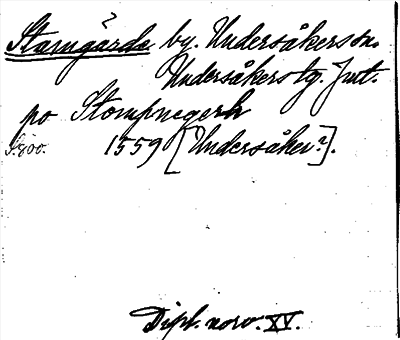 Stamgärde by. Undersåkers sn.
Undersåkers tg. Jmt.
po Stompnegerh
S. 800. 1559 [Undersåker?].
Dipl. norv. XV.